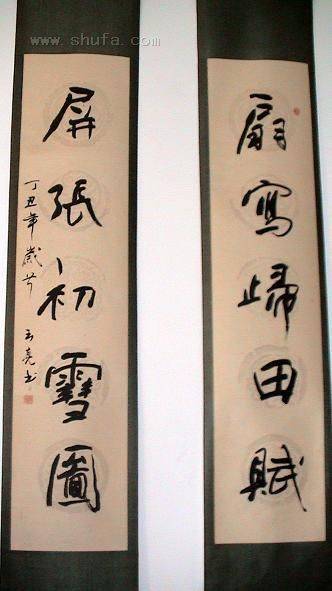 www.shufa.com
扇寫歸田賦
屏張初雪圖
丁丑年歲芳
云亮书